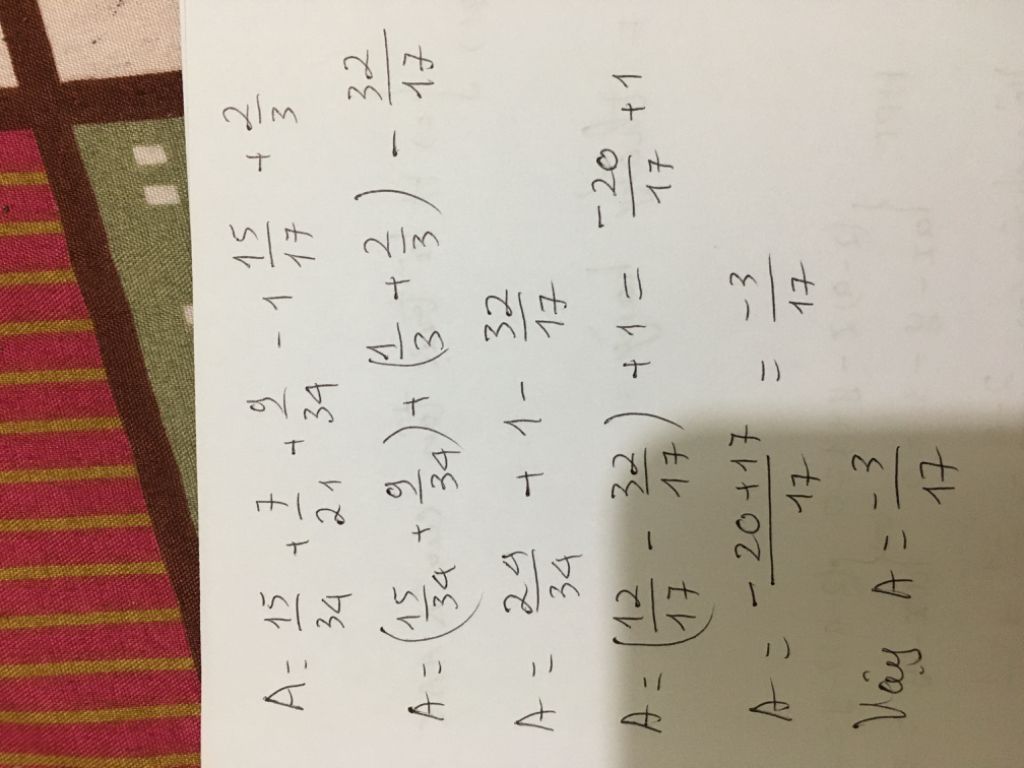 A = 15/34 + 7/21 + 9/34 - 1 15/17 + 2/3
A = (15/34 + 9/34) + (1/3 + 2/3) - 32/17
A = 24/34 + 1 - 32/17
A = (12/17 - 32/17) + 1 = -20/17 + 1
A = -20+17/17 = -3/17
Vậy A = -3/17